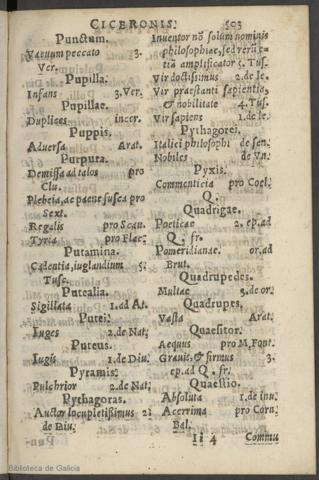 CICERONIS. 503
Punctum.
Vacuum peccato 3.
Ver.
Pupilla.
Infans 3. Ver.
Pupillae.
Duplices incer.
Puppis.
Aduersa Arat.
Purpura.
Demissa ad talos pro
Clu.
Plebeia, ac paene fusca pro
Sext.
Regalis pro Scau.
Tyria pro Flac.
Putamina.
Cadentia, iuglandium 5.
Tusc.
Putealia.
Sigillata 1. ad At.
Putei.
Iuges 2. de Nat.
Puteus.
Iugis 1. de Diu.
Pyramis.
Pulchrior 2. de Nat.
Pythagoras.
Auctor locupletissimus 2.
de Diu.
Inuentor nõ solum nominis
philosophiae, sed rerū e-
tiā amplificator 5. Tus.
Vir doctissimus 2. de le.
Vir praestanti sapientia,
& nobilitate 4. Tus.
Vir sapiens 1. de le.
Pythagorei.
Italici philosophi de sen.
Nobiles de Vn.
Pyxis.
Commenticia pro Coel.
Q.
Quadrigae.
Poeticae 2. ep. ad
Q. fr.
Pomeridianae. or. ad
Brut.
Quadrupedes.
Multae 3. de or.
Quadrupes.
Vasta Arat.
Quaesitor.
Aequus pro M. Font.
Grauis, & firmus 3.
ep. ad Q. fr.
Quaestio.
Absoluta 1. de inu.
Acerrima pro Corn.
Bal.
Ii 4 Commu
Biblioteca de Galicia